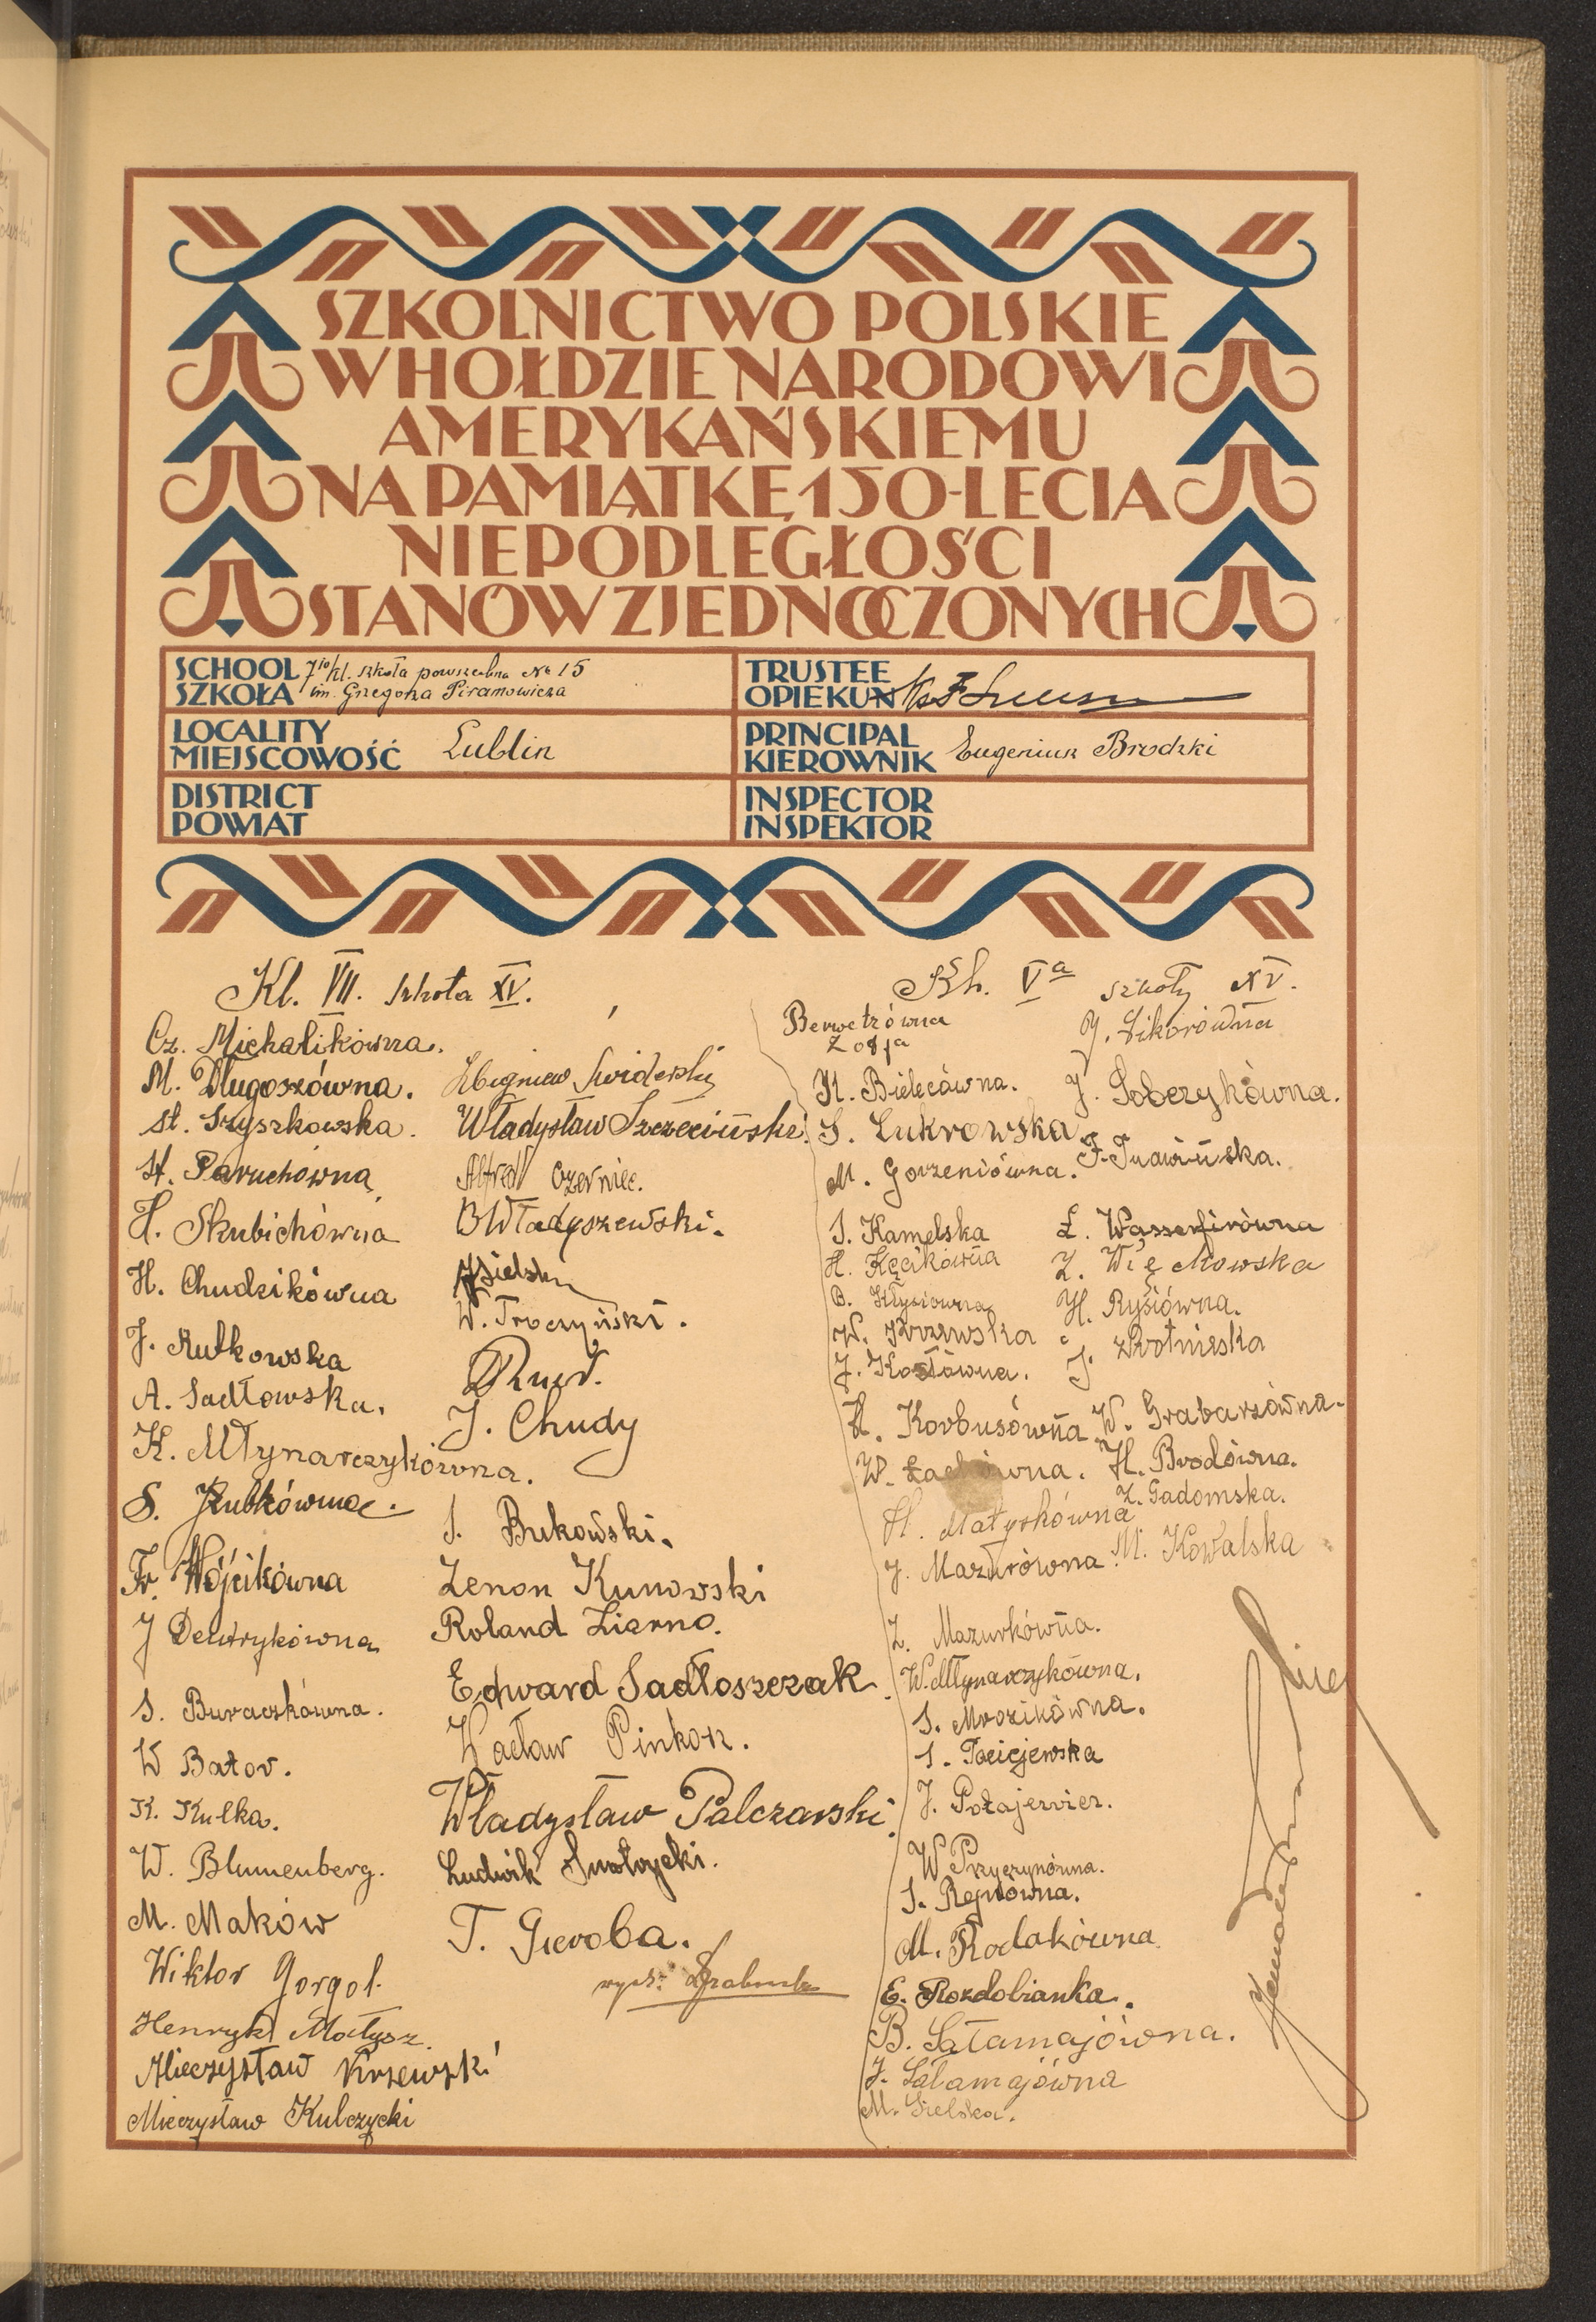 SZKOLNICTWO POLSKIE
W HOŁDZIE NARODOWI
AMERYKAŃSKIEMU
NA PAMIĄTKĘ 150-LECIA
NIEPODLEGŁOŚCI
STANÓW ZJEDNOCZONYCH
SCHOOL
SZKOŁA
7io/kl. szkoła powszechna № 15
im. Grzegorza Piramowicza
TRUSTEE
OPIEKUN
LOCALITY
MIEJSCOWOŚĆ
Lublin
PRINCIPAL
KIEROWNIK
Eugeniusz Brodzki
DISTRICT
POWIAT
INSPECTOR
INSPEKTOR
Kl. VII. szkoła XV.
Cz. Michalikówna.
M. Długoszówna.
St. Gryszkowska.
St. Paruchówna
H. Skubichówna
H. Chudzikówna
J. Rutkowska
A. Sadłowska.
K. Młynarczykówna.
S. Rubkówna.
Fr. Wójcikówna
J Demtrykówna
S. Buraczkówna.
W Bator.
K. Kulka.
W. Blumenberg.
M. Maków
Wiktor Gorgol.
Henryk Matysz.
Mieczysław Krzewski
Mieczysław Kulczycki
Zbigniew Swiderski
Władysław Szczeciński
Alfred Czerniec.
B Władyszewski.
W. Troczyński.
J. Chudy
S. Bukowski.
Zenon Kunowski
Roland Ziarno.
Edward Sadłoszczak.
Wacław Pinkosz.
Władysław Palczewski.
Ludwik Smotrycki.
T. Gieroba.
Kl. Va szkoły XV.
Berwetzówna
Zofja
H. Bielecówna.
S. Cukrowska
M. Gorzeniówna.
S. Kamelska
H. Kęcikówna
B. Kłysiówna
W. Krzewska
J. Kozłówna.
H. Korbusówna
W.
H. Matyskówna
J. Mazurówna
Z. Mazurkówna.
W. Młynarczykówna.
S. Mrozikówna.
S. Paciejewska
J. Pożajewicz.
W Przyczynówna.
S. Rejnówna.
M. Rodakówna
E. Rozdobianka.
B. Sałamajówna.
J. Sałamajówna
M. Sielska.
J. Sikorówna
J. Sobczykówna.
L. Wasserfirówna
Z. Więckowska
H. Rysiówna.
J. Złotnicka
W. Grabarzówna.
H. Brodówna.
Z. Gadomska.
M. Kowalska